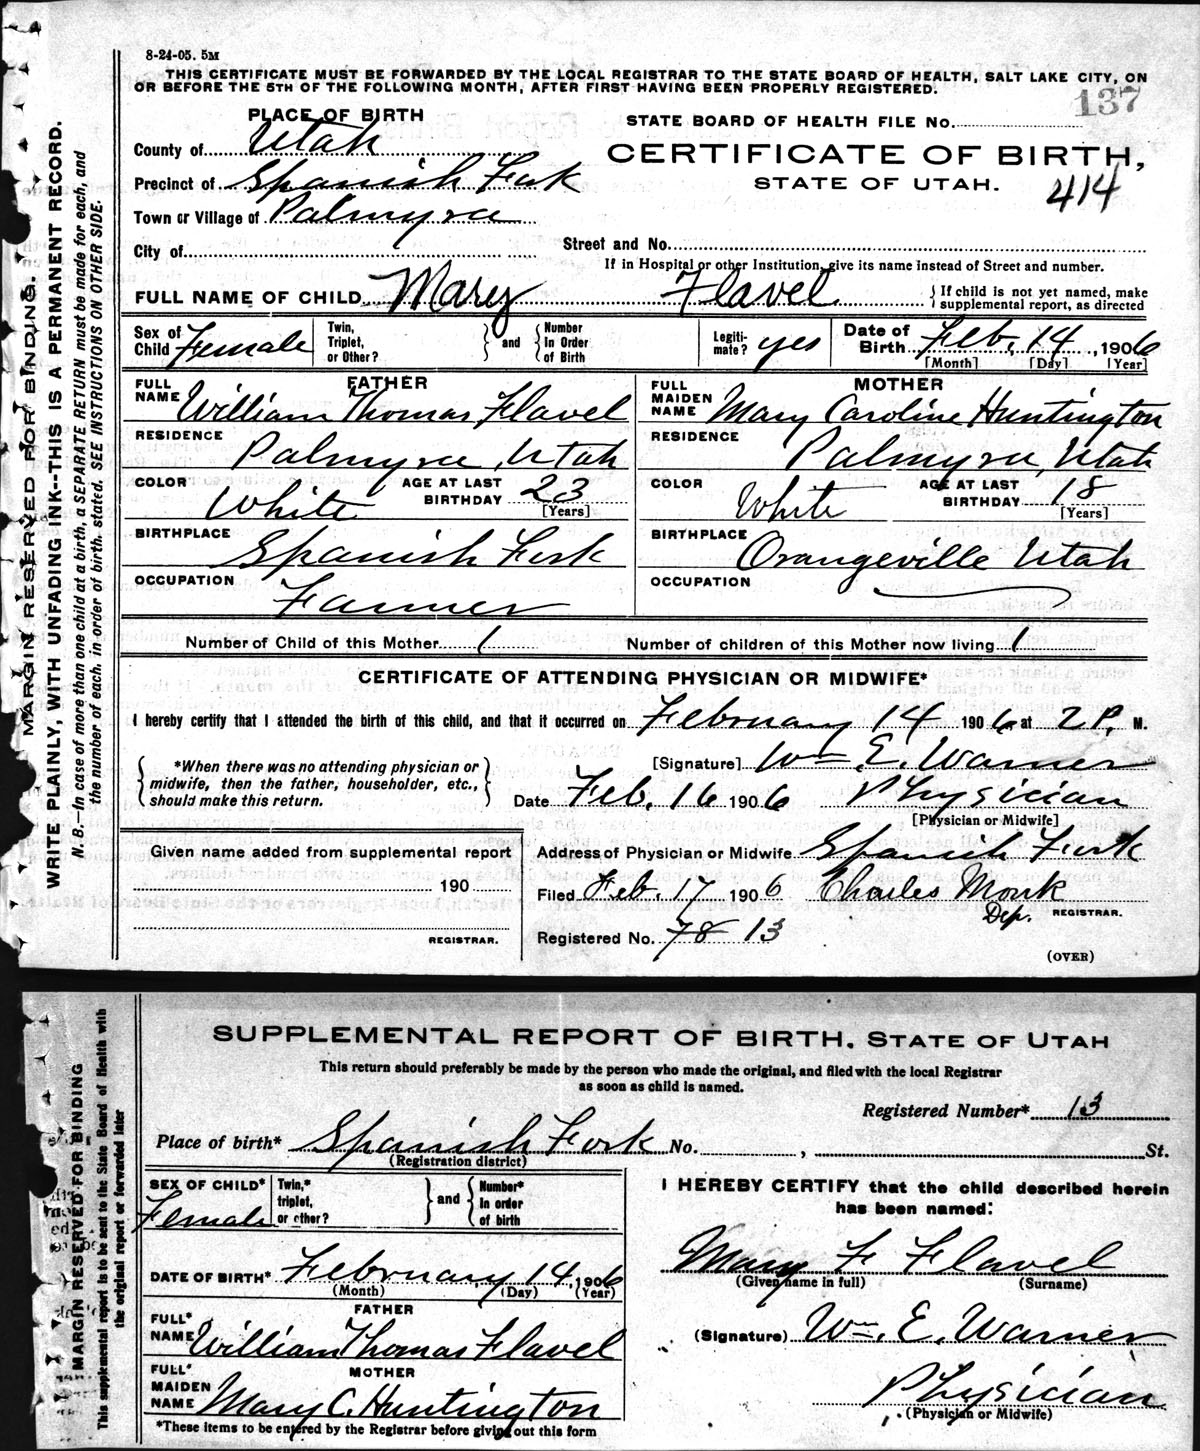 8-24-05. 5M
THIS CERTIFICATE MUST BE FORWARDED BY THE LOCAL REGISTRAR TO THE STATE BOARD OF HEALTH, SALT LAKE CITY, ON
OR BEFORE THE 5TH OF THE FOLLOWING MONTH, AFTER FIRST HAVING BEEN PROPERLY REGISTERED.
137
PLACE OF BIRTH
STATE BOARD OF HEALTH FILE No.
County of Utah
CERTIFICATE OF BIRTH,
Precinct of Spanish Fork
STATE OF UTAH.
414
Town or Village of Palmyra
City of
Street and No.
If in Hospital or other Institution, give its name instead of Street and number.
FULL NAME OF CHILD Mary Flavel
If child is not yet named, make
supplemental report, as directed
Sex of Child Female
Twin, Triplet, or Other? and Number In Order of Birth
Legiti-mate? yes
Date of Birth Feb. 14, 1906
[Month] [Day] [Year]
FATHER
FULL NAME William Thomas Flavel
RESIDENCE Palmyra, Utah
COLOR White
AGE AT LAST BIRTHDAY 23 [Years]
BIRTHPLACE Spanish Fork
OCCUPATION Farmer
MOTHER
FULL MAIDEN NAME Mary Caroline Huntington
RESIDENCE Palmyra, Utah
COLOR White
AGE AT LAST BIRTHDAY 18 [Years]
BIRTHPLACE Orangeville Utah
OCCUPATION
Number of Child of this Mother 1
Number of children of this Mother now living 1
CERTIFICATE OF ATTENDING PHYSICIAN OR MIDWIFE*
I hereby certify that I attended the birth of this child, and that it occurred on February 14 1906, at 2 P. M.
*When there was no attending physician or
midwife, then the father, householder, etc.,
should make this return.
[Signature] Wm E. Warner
Date Feb. 16 1906 Physician
[Physician or Midwife]
Given name added from supplemental report
190
REGISTRAR.
Address of Physician or Midwife Spanish Fork
Filed Feb. 17 1906 Charles Monk
Dep. REGISTRAR.
Registered No. 78 13
(OVER)
MARGIN RESERVED FOR BINDING.
WRITE PLAINLY, WITH UNFADING INK--THIS IS A PERMANENT RECORD.
N. B.—In case of more than one child at a birth, a SEPARATE RETURN must be made for each, and
the number of each, in order of birth, stated. SEE INSTRUCTIONS ON OTHER SIDE.
SUPPLEMENTAL REPORT OF BIRTH, STATE OF UTAH
This return should preferably be made by the person who made the original, and filed with the local Registrar
as soon as child is named.
Registered Number* 13
Place of birth* Spanish Fork No. , St.
(Registration district)
SEX OF CHILD* Female
Twin,* triplet, or other? and Number* In order of birth
DATE OF BIRTH* February 14, 1906
(Month) (Day) (Year)
FATHER
FULL* NAME William Thomas Flavel
MOTHER
FULL* MAIDEN NAME Mary C. Huntington
*These items to be entered by the Registrar before giving out this form
I HEREBY CERTIFY that the child described herein
has been named:
Mary F Flavel
(Given name in full) (Surname)
(Signature) Wm. E. Warner
Physician
(Physician or Midwife)
MARGIN RESERVED FOR BINDING
This supplemental report is to be sent to the State Board of Health with
the original report or forwarded later